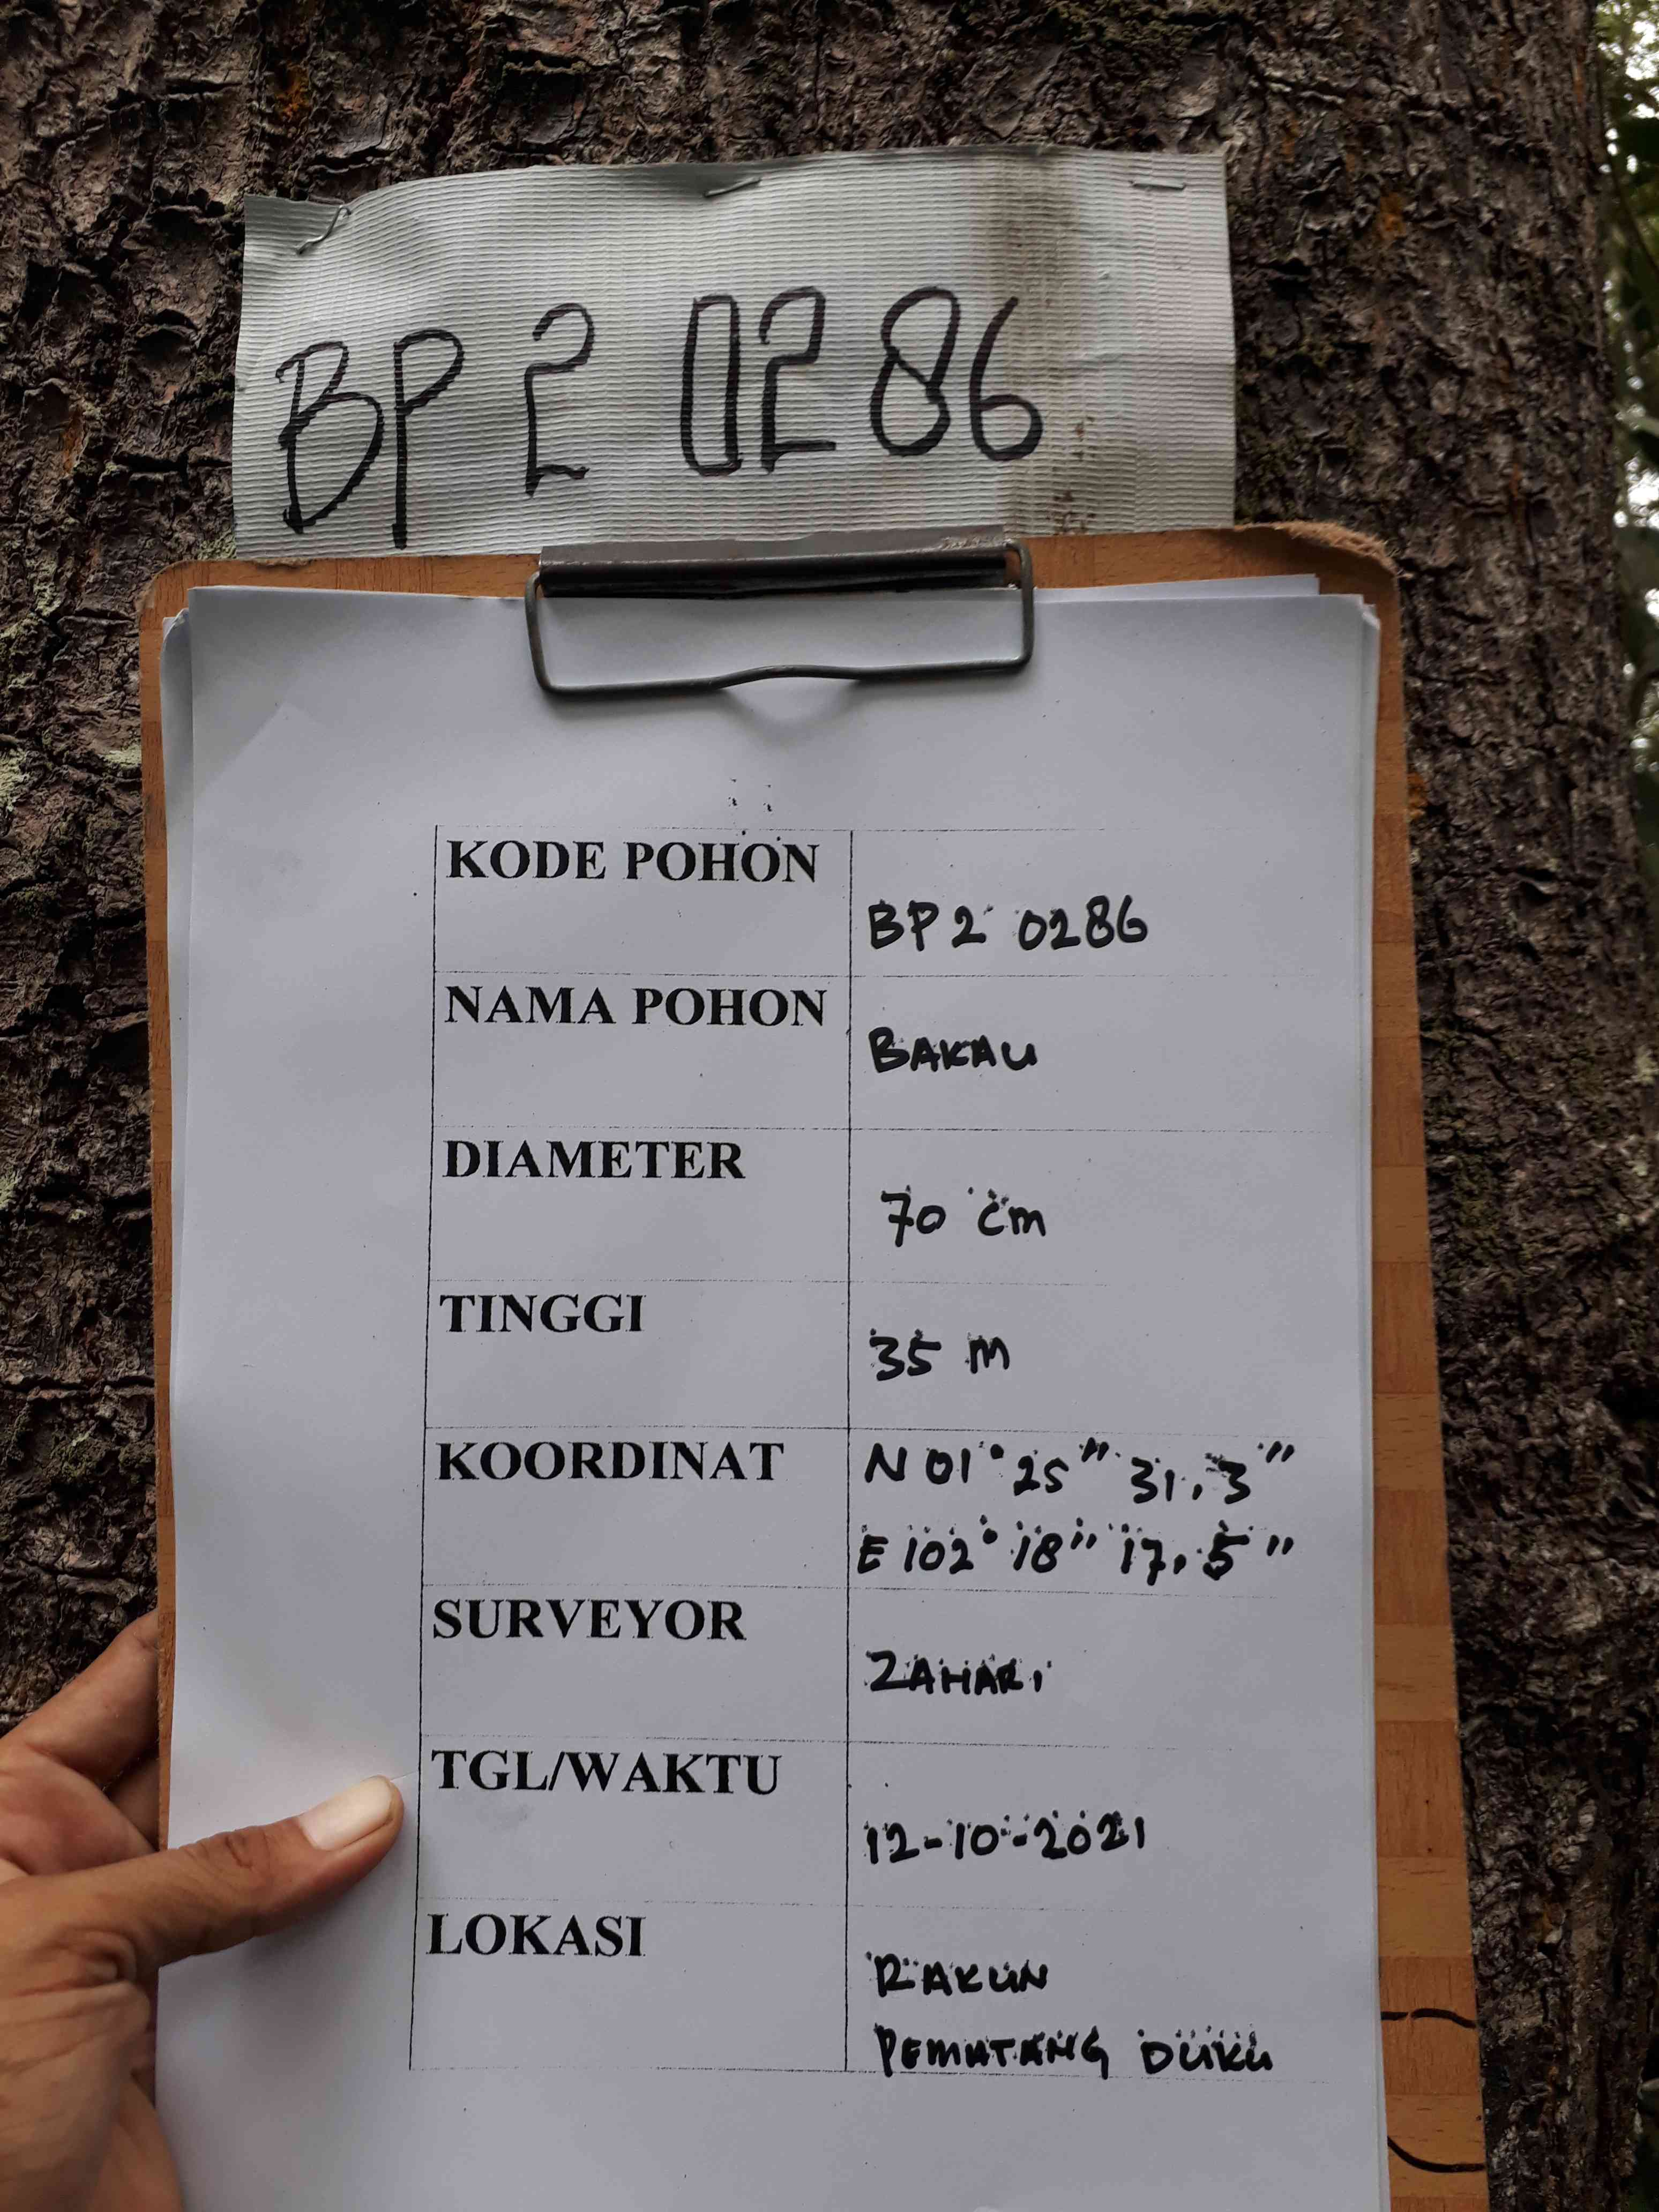 BP 2 0286
KODE POHON
BP 2 0286
NAMA POHON
BAKAU
DIAMETER
70 cm
TINGGI
35 m
KOORDINAT
N 01° 25" 31,3"
E 102° 18" 17,5"
SURVEYOR
ZAHARI
TGL/WAKTU
12-10-2021
LOKASI
RAKUN
PEMATANG DUKU